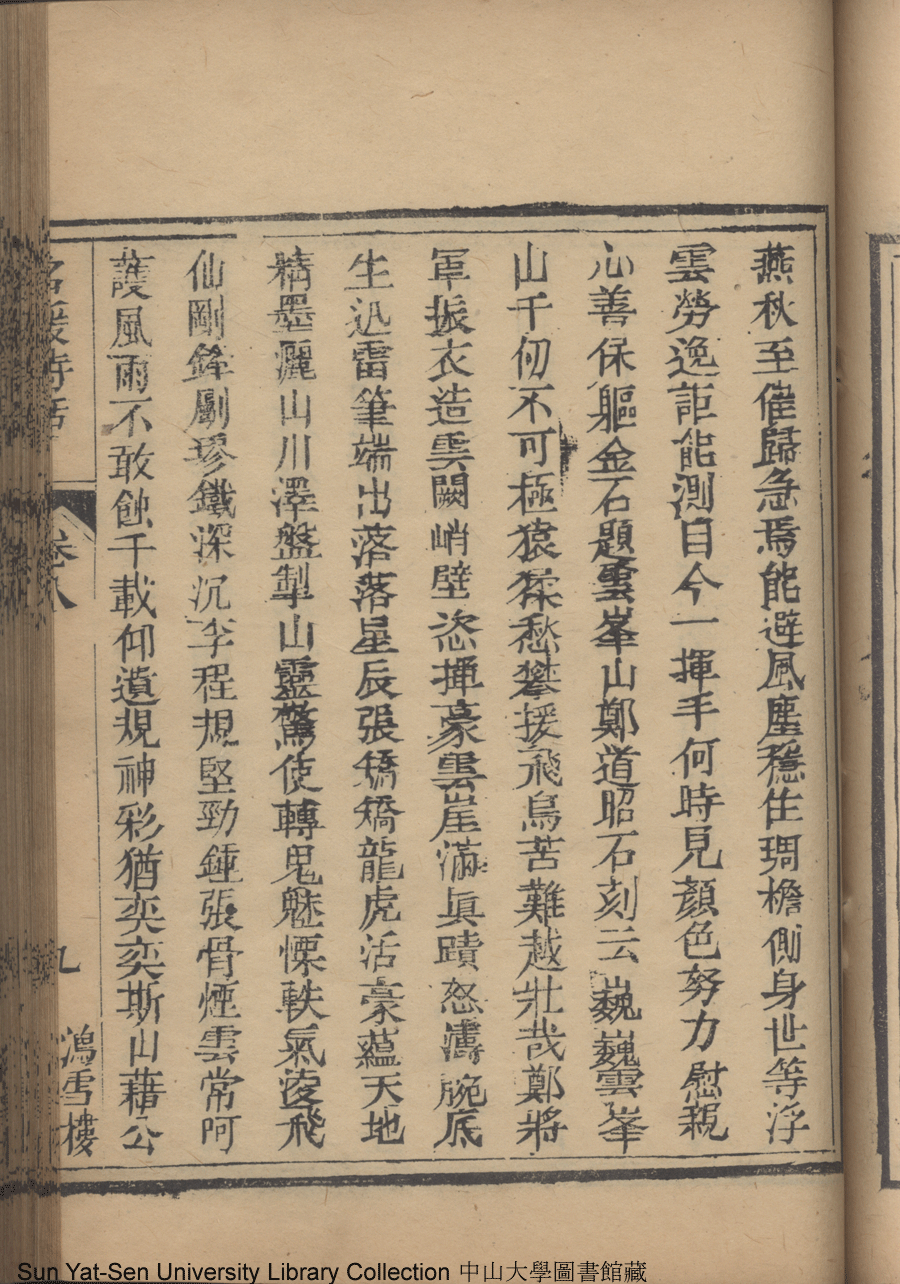 燕秋至催歸急焉能避風塵穩住琱檐側身世等浮
雲勞逸詎能測目今一揮手何時見顏色努力慰親
心善保軀金石題雲峯山鄭道昭石刻云巍巍雲峯
山千仞不可極猿猱愁攀援飛鳥苦難越壯哉鄭將
軍振衣造雲闕峭壁恣揮豪雲崖滿眞蹟怒濤腕底
生迅雷筆端出落落星辰張矯矯龍虎活豪蘊天地
精墨灑山川澤盤掣山靈驚使轉鬼魅慄軼氣凌飛
仙剛鋒劚珍鐵深沉李程規堅勁鍾張骨煙雲常呵
護風雨不敢蝕千載仰遺規神彩猶奕奕斯山藉公
名媛詩話 卷八 九 鴻雪樓
Sun Yat-Sen University Library Collection 中山大學圖書館藏